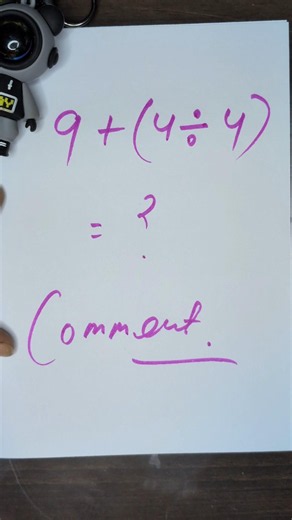 9 + (4 ÷ 4)
= ?
Comment.